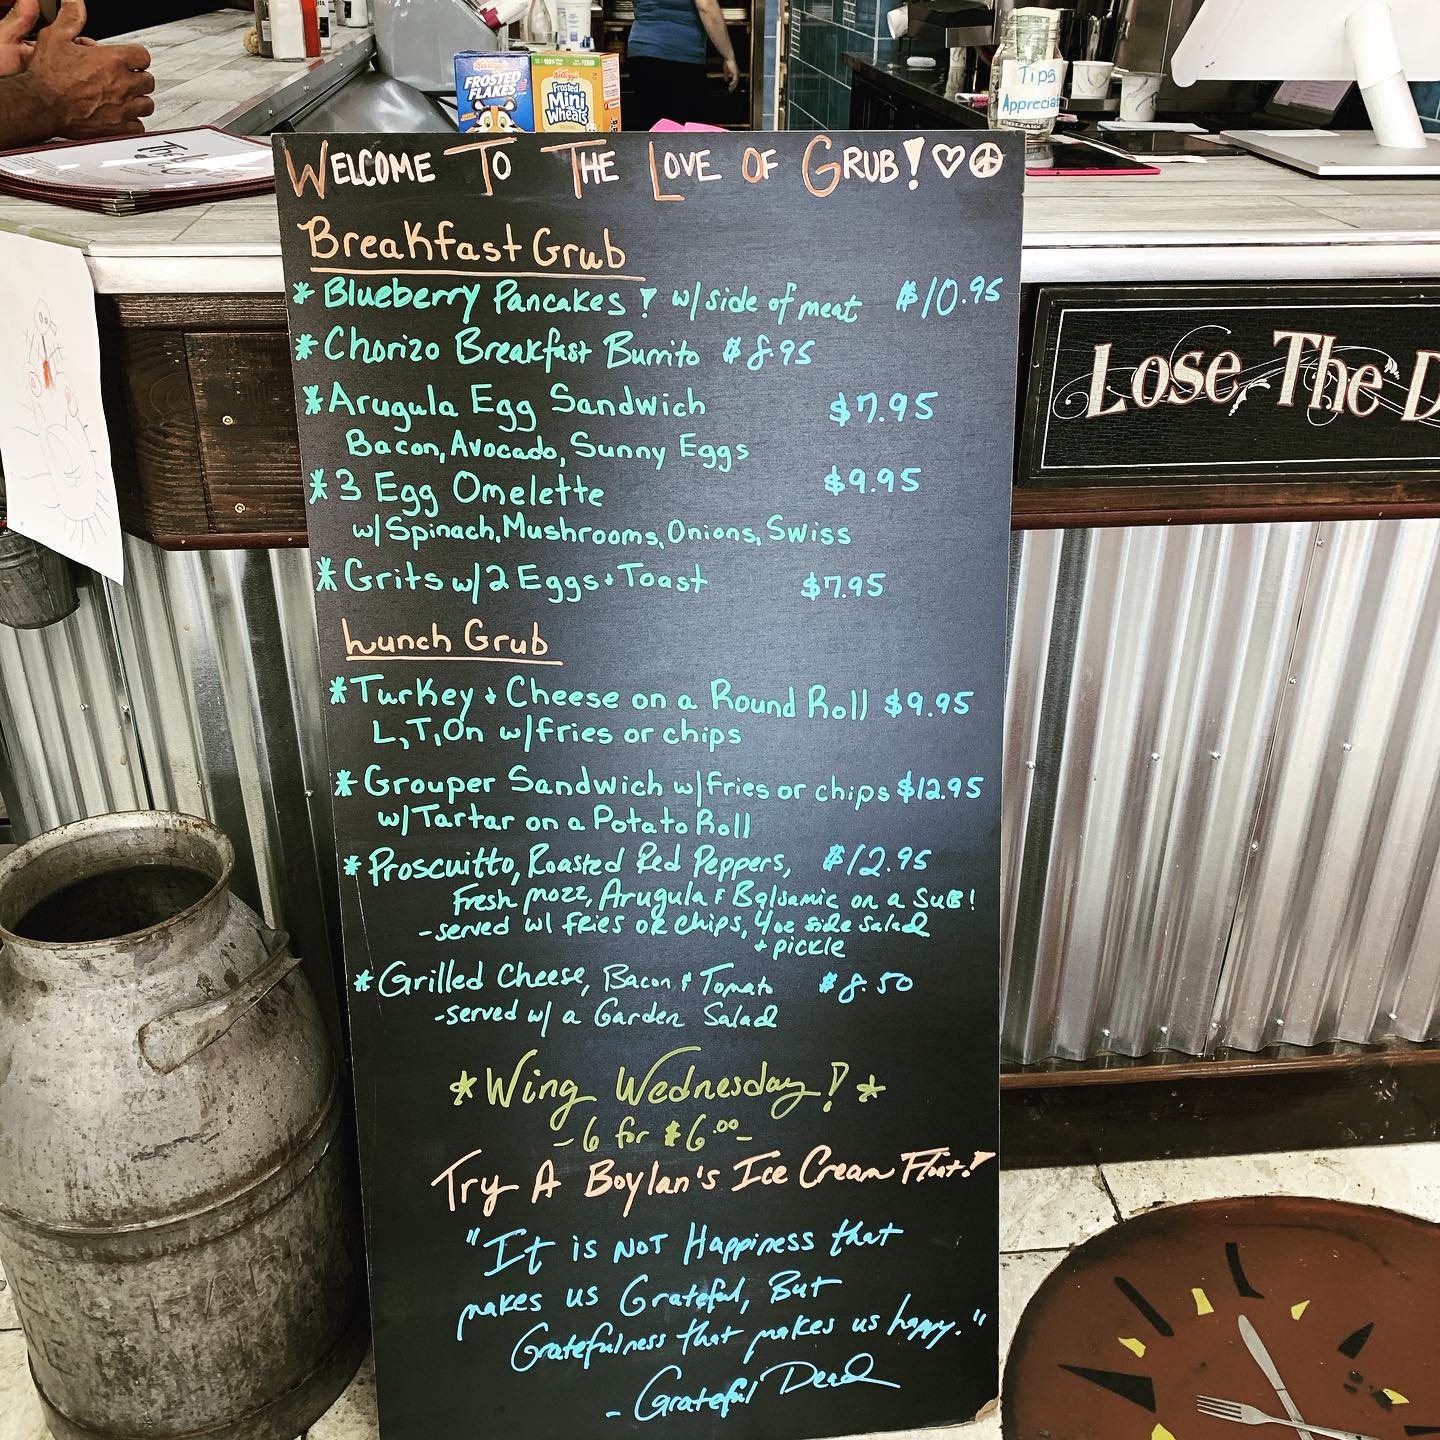 Kellogg's
FROSTED
FLAKES
Kellogg's
Frosted
Mini
Wheats
Tips
Appreciat
WELCOME TO THE LOVE OF GRUB!
Breakfast Grub
* Blueberry Pancakes! w/side of meat $10.95
* Chorizo Breakfast Burrito $8.95
* Arugula Egg Sandwich $7.95
Bacon, Avocado, Sunny Eggs
* 3 Egg Omelette $9.95
w/Spinach, Mushrooms, Onions, Swiss
* Grits w/2 Eggs + Toast $7.95
Lunch Grub
* Turkey + Cheese on a Round Roll $9.95
L, T, On w/fries or chips
* Grouper Sandwich w/fries or chips $12.95
w/Tartar on a Potato Roll
* Proscuitto, Roasted Red Peppers, $12.95
Fresh mozz, Arugula & Balsamic on a SuB!
-served w/ fries or chips, 4oz side salad
+ pickle
* Grilled Cheese, Bacon & Tomato $8.50
-served w/ a Garden Salad
*Wing Wednesday!*
-6 for $6.00-
Try A Boylan's Ice Cream Float!
"It is NOT Happiness that
makes us Grateful, But
Gratefulness that makes us happy."
- Grateful Dead
LOSE THE D